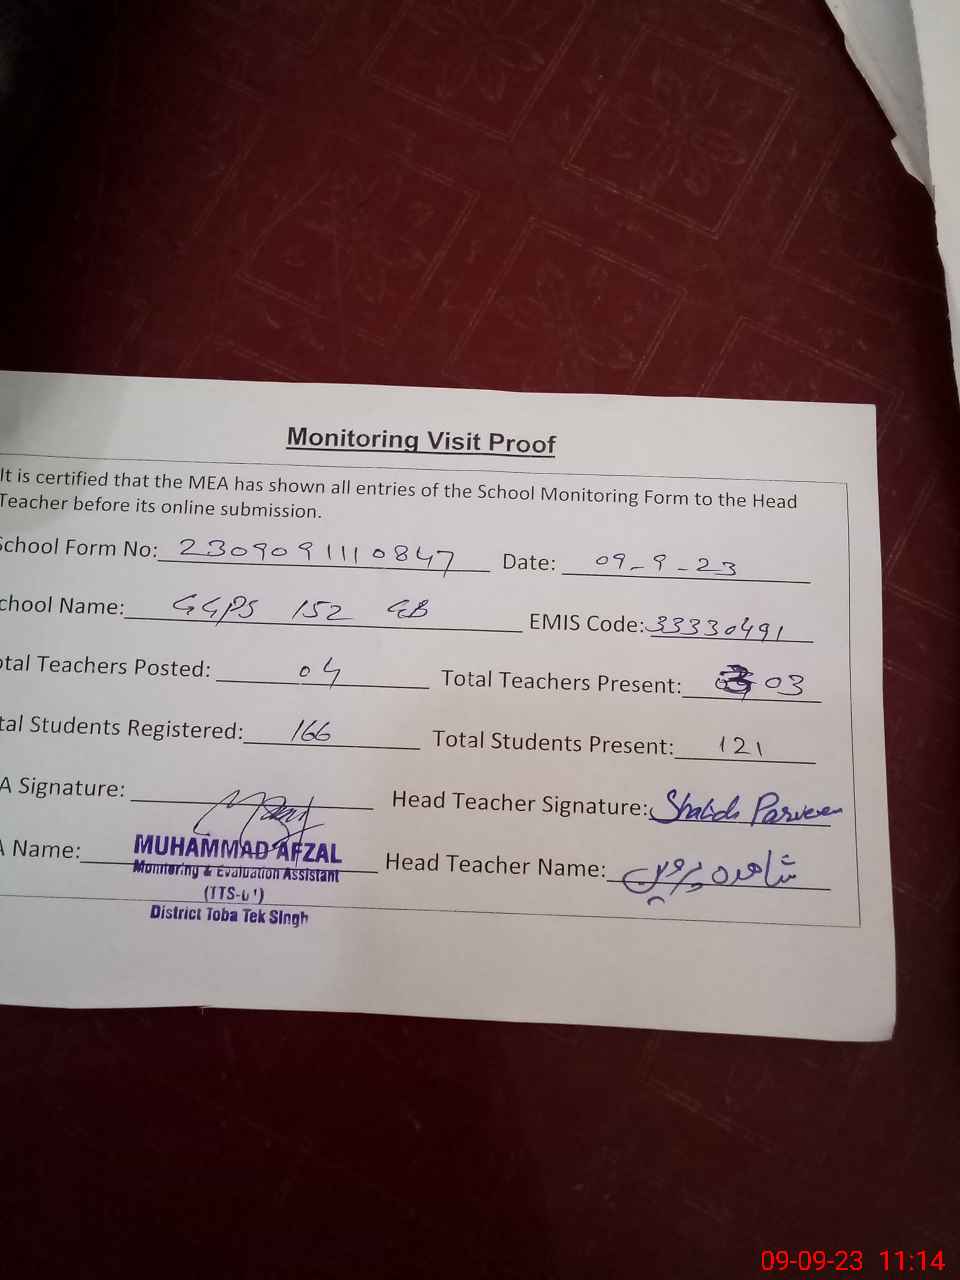 Monitoring Visit Proof
It is certified that the MEA has shown all entries of the School Monitoring Form to the Head
Teacher before its online submission.
School Form No: 2309091110847 Date: 09-9-23
chool Name: GGPS 152 GB EMIS Code: 33330491
otal Teachers Posted: 04 Total Teachers Present: 03
tal Students Registered: 166 Total Students Present: 121
A Signature: Head Teacher Signature: Shahida Parveen
A Name: MUHAMMAD AFZAL Head Teacher Name: شاہدہ پروین
Monitoring & Evaluation Assistant
District Toba Tek Singh
09-09-23 11:14